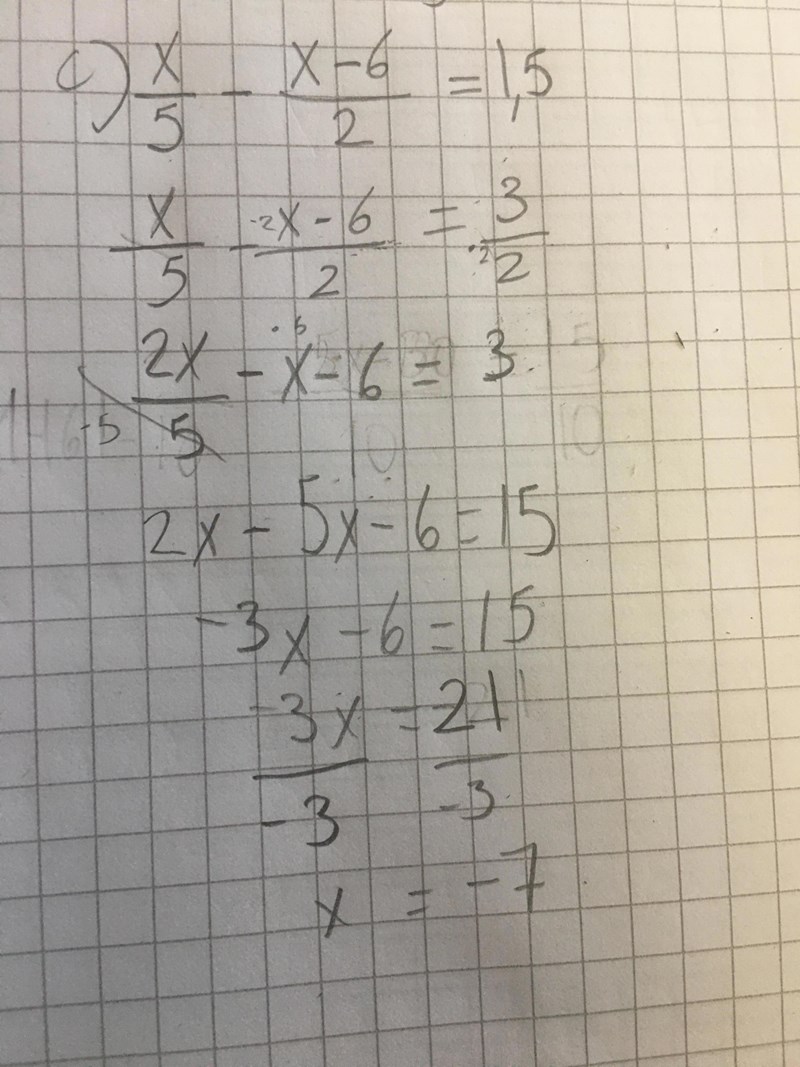 c) x/5 - x-6/2 = 1,5
x/5 - ·2 x-6/2 = 3/2 ·2
2x/5 ·5 - x ·5 - 6 = 3
2x - 5x - 6 = 15
-3x - 6 = 15
-3x/-3 = 21/-3
x = -7